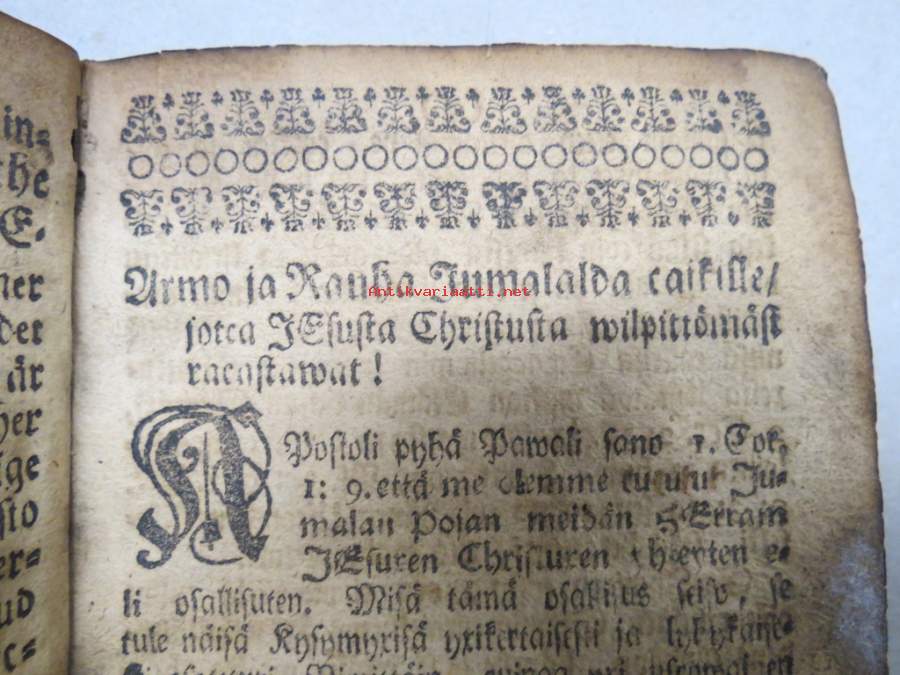 in=
che
E.
ner
der
är
her
ige
sto
er=
ud
c=
Armo ja Rauha Jumalalda caikille/
jotca JEsusta Christusta wilpittömäst
racastawat!
APostoli pyhä Pawali sano 1. Cor.
1: 9. että me olemme cutzutut Ju-
malan Pojan meidän HErram
JEsuxen Christuxen yhteyten e-
li osallisuten. Misä tämä osallisus seiso, se
tule näisä Kysymyxisä yxikertaisesti ja lyhykäise-
Antikvariaatti.net